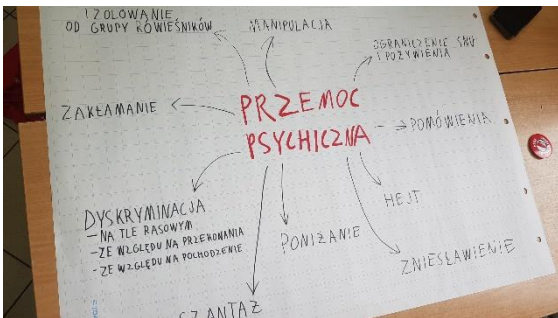 IZOLOWANIE
OD GRUPY RÓWIEŚNIKÓW
MANIPULACJA
OGRANICZENIE SNU
I POŻYWIENIA
ZAKŁAMANIE
PRZEMOC
PSYCHICZNA
POMÓWIENIA
DYSKRYMINACJA
- NA TLE RASOWYM
- ZE WZGLĘDU NA PRZEKONANIA
- ZE WZGLĘDU NA POCHODZENIE
HEJT
PONIŻANIE
ZNIESŁAWIENIE
SZANTAŻ